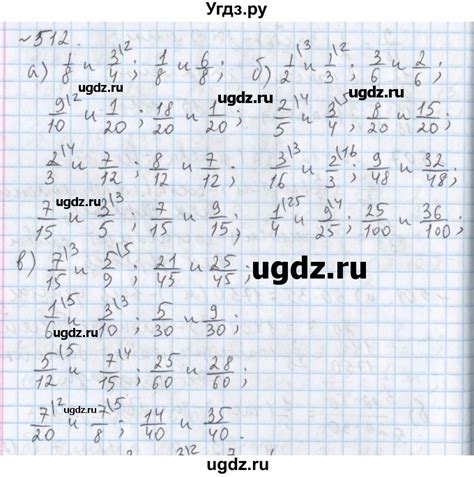 Угдз.ру
~512.
а) 1/8 и 3/4 |2 ; 1/8 и 6/8 ; б) 1/2 |3 и 1/3 |2 ; 3/6 и 2/6 ;
9/10 |2 и 1/20 ; 18/20 и 1/20 ; 2/5 |4 и 3/4 |5 ; 8/20 и 15/20 ;
2/3 |4 и 7/12 ; 8/12 и 7/12 ; 3/16 |3 и 2/3 |16 ; 9/48 и 32/48 ;
7/15 и 3/5 |3 ; 7/15 и 9/15 ; 1/4 |25 и 9/25 |4 ; 25/100 и 36/100 ;
в) 7/15 |3 и 5/9 |5 ; 21/45 и 25/45 ;
1/6 |5 и 3/10 |3 ; 5/30 и 9/30 ;
5/12 |5 и 7/15 |4 ; 25/60 и 28/60 ;
7/20 |2 и 7/8 |5 ; 14/40 и 35/40 .
ugdz.ru
ugdz.ru
ugdz.ru
ugdz.ru
ugdz.ru
ugdz.ru
ugdz.ru
ugdz.ru
ugdz.ru
ugdz.ru
ugdz.ru
ugdz.ru
ugdz.ru